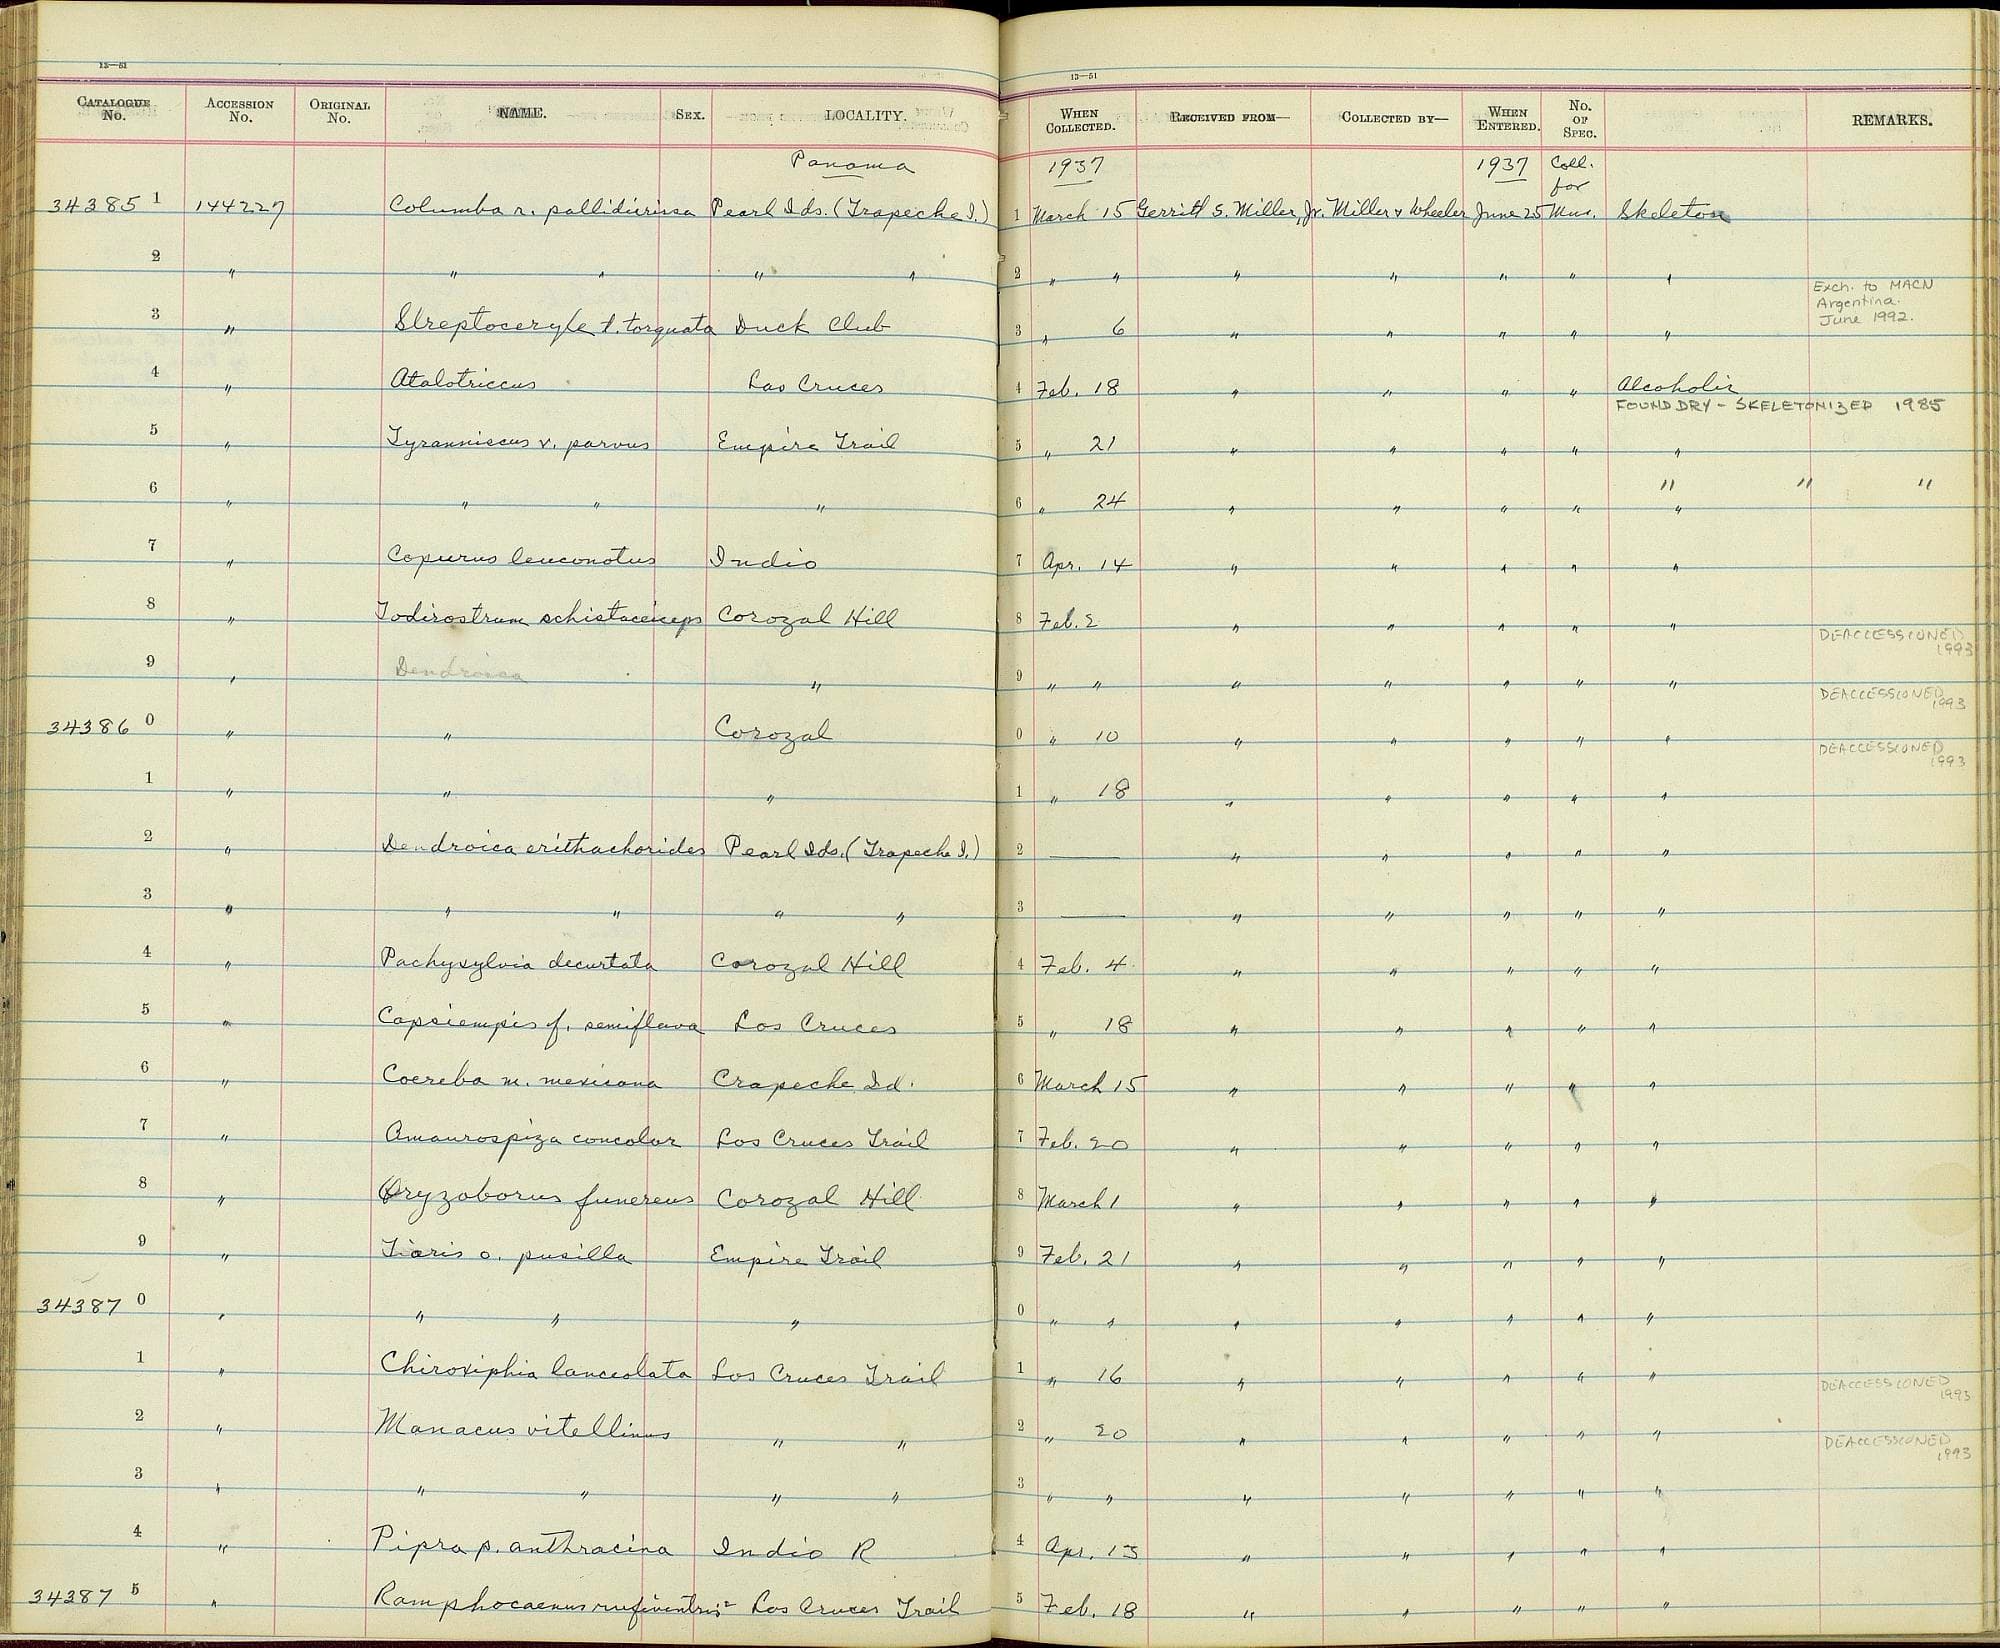 13—51
13—51
CATALOGUE No. ACCESSION No. ORIGINAL No. NAME. SEX. LOCALITY. WHEN COLLECTED. RECEIVED FROM— COLLECTED BY— WHEN ENTERED. No. OF SPEC. REMARKS.
Panama 1937 1937 Coll. for
34385 1 144227 Columba r. pallidicrissa Pearl Ids. (Trapeche I.) 1 March 15 Gerrit S. Miller, Jr. Miller & Wheeler June 25 Mus. Skeleton
2 " " " " " 2 " " " " " " "
Exch. to MACN
Argentina.
June 1992.
3 " Streptoceryle t. torquata Duck Club 3 " 6 " " " " "
4 " Atalotriccus Las Cruces 4 Feb. 18 " " " " Alcoholic
FOUND DRY - SKELETONIZED 1985
5 " Tyranniscus v. parvus Empire Trail 5 " 21 " " " " "
" " "
6 " " " " 6 " 24 " " " " "
7 " Copurus leuconotus Indio 7 Apr. 14 " " " " "
8 " Todirostrum schistaceiceps Corozal Hill 8 Feb. 2 " " " " "
DEACCESSIONED 1993
9 " Dendroica " 9 " " " " " " "
DEACCESSIONED 1993
34386 0 " " Corozal 0 " 10 " " " " "
DEACCESSIONED 1993
1 " " " 1 " 18 " " " " "
2 " Dendroica erithachorides Pearl Ids. (Trapeche I.) 2 — " " " " "
3 " " " " " 3 — " " " " "
4 " Pachysylvia decurtata Corozal Hill 4 Feb. 4 " " " " "
5 " Capsiempis f. semiflava Los Cruces 5 " 18 " " " " "
6 " Coereba m. mexicana Crapeche Id. 6 March 15 " " " " "
7 " Amaurospiza concolor Los Cruces Trail 7 Feb. 20 " " " " "
8 " Oryzoborus funereus Corozal Hill 8 March 1 " " " " "
9 " Tiaris o. pusilla Empire Trail 9 Feb. 21 " " " " "
34387 0 " " " " 0 " " " " " " "
1 " Chiroxiphia lanceolata Los Cruces Trail 1 " 16 " " " " "
DEACCESSIONED 1993
2 " Manacus vitellinus " " 2 " 20 " " " " "
DEACCESSIONED 1993
3 " " " " " 3 " " " " " " "
4 " Pipra p. anthracina Indio R 4 Apr. 13 " " " " "
34387 5 " Ramphocaenus rufiventris Los Cruces Trail 5 Feb. 18 " " " " "